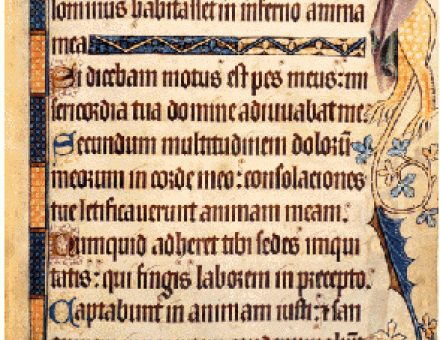 dominus habitasset in inferno anima
mea
Si dicebam motus est pes meus: mi
sericordia tua domine adiuuabat me.
Secundum multitudinem dolorū
meorum in corde meo: consolaciones
tue letificauerunt animam meam.
Numquid adheret tibi sedes iniqui
tatis: qui fingis laborem in precepto.
Captabunt in animam iusti: & san